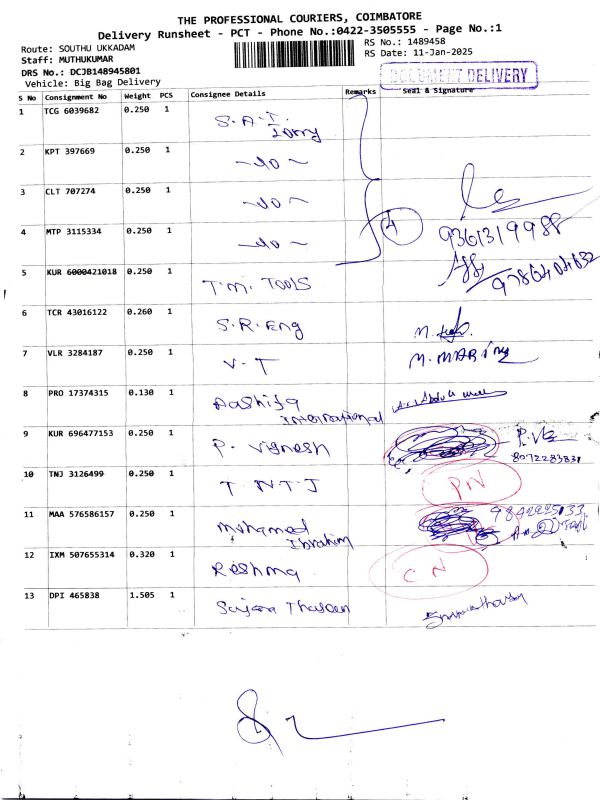 THE PROFESSIONAL COURIERS, COIMBATORE
Delivery Runsheet - PCT - Phone No.:0422-3505555 - Page No.:1
Route: SOUTHU UKKADAM
RS No.: 1489458
Staff: MUTHUKUMAR
RS Date: 11-Jan-2025
DRS No.: DCJB148945801
Vehicle: Big Bag Delivery
DOCUMENT DELIVERY
S No Consignment No Weight PCS Consignee Details Remarks Seal & Signature
1 TCG 6039682 0.250 1 S.A.T. Lorry
2 KPT 397669 0.250 1 -do-
3 CLT 707274 0.250 1 -do-
4 MTP 3115334 0.250 1 -do- 4 9361319988
5 KUR 6000421018 0.250 1 T.M. TOOLS 9786404632
6 TCR 43016122 0.260 1 S.R. Eng
7 VLR 3284187 0.250 1 V-T M. MARiMy
8 PRO 17374315 0.130 1 Aashifa International
9 KUR 696477153 0.250 1 P. Vignesh 8072283831
10 TNJ 3126499 0.250 1 T.NTJ PN
11 MAA 576586157 0.250 1 Mohamed Ibrahim
12 IXM 507655314 0.320 1 Reshma CN
13 DPI 465838 1.505 1 Thaseen